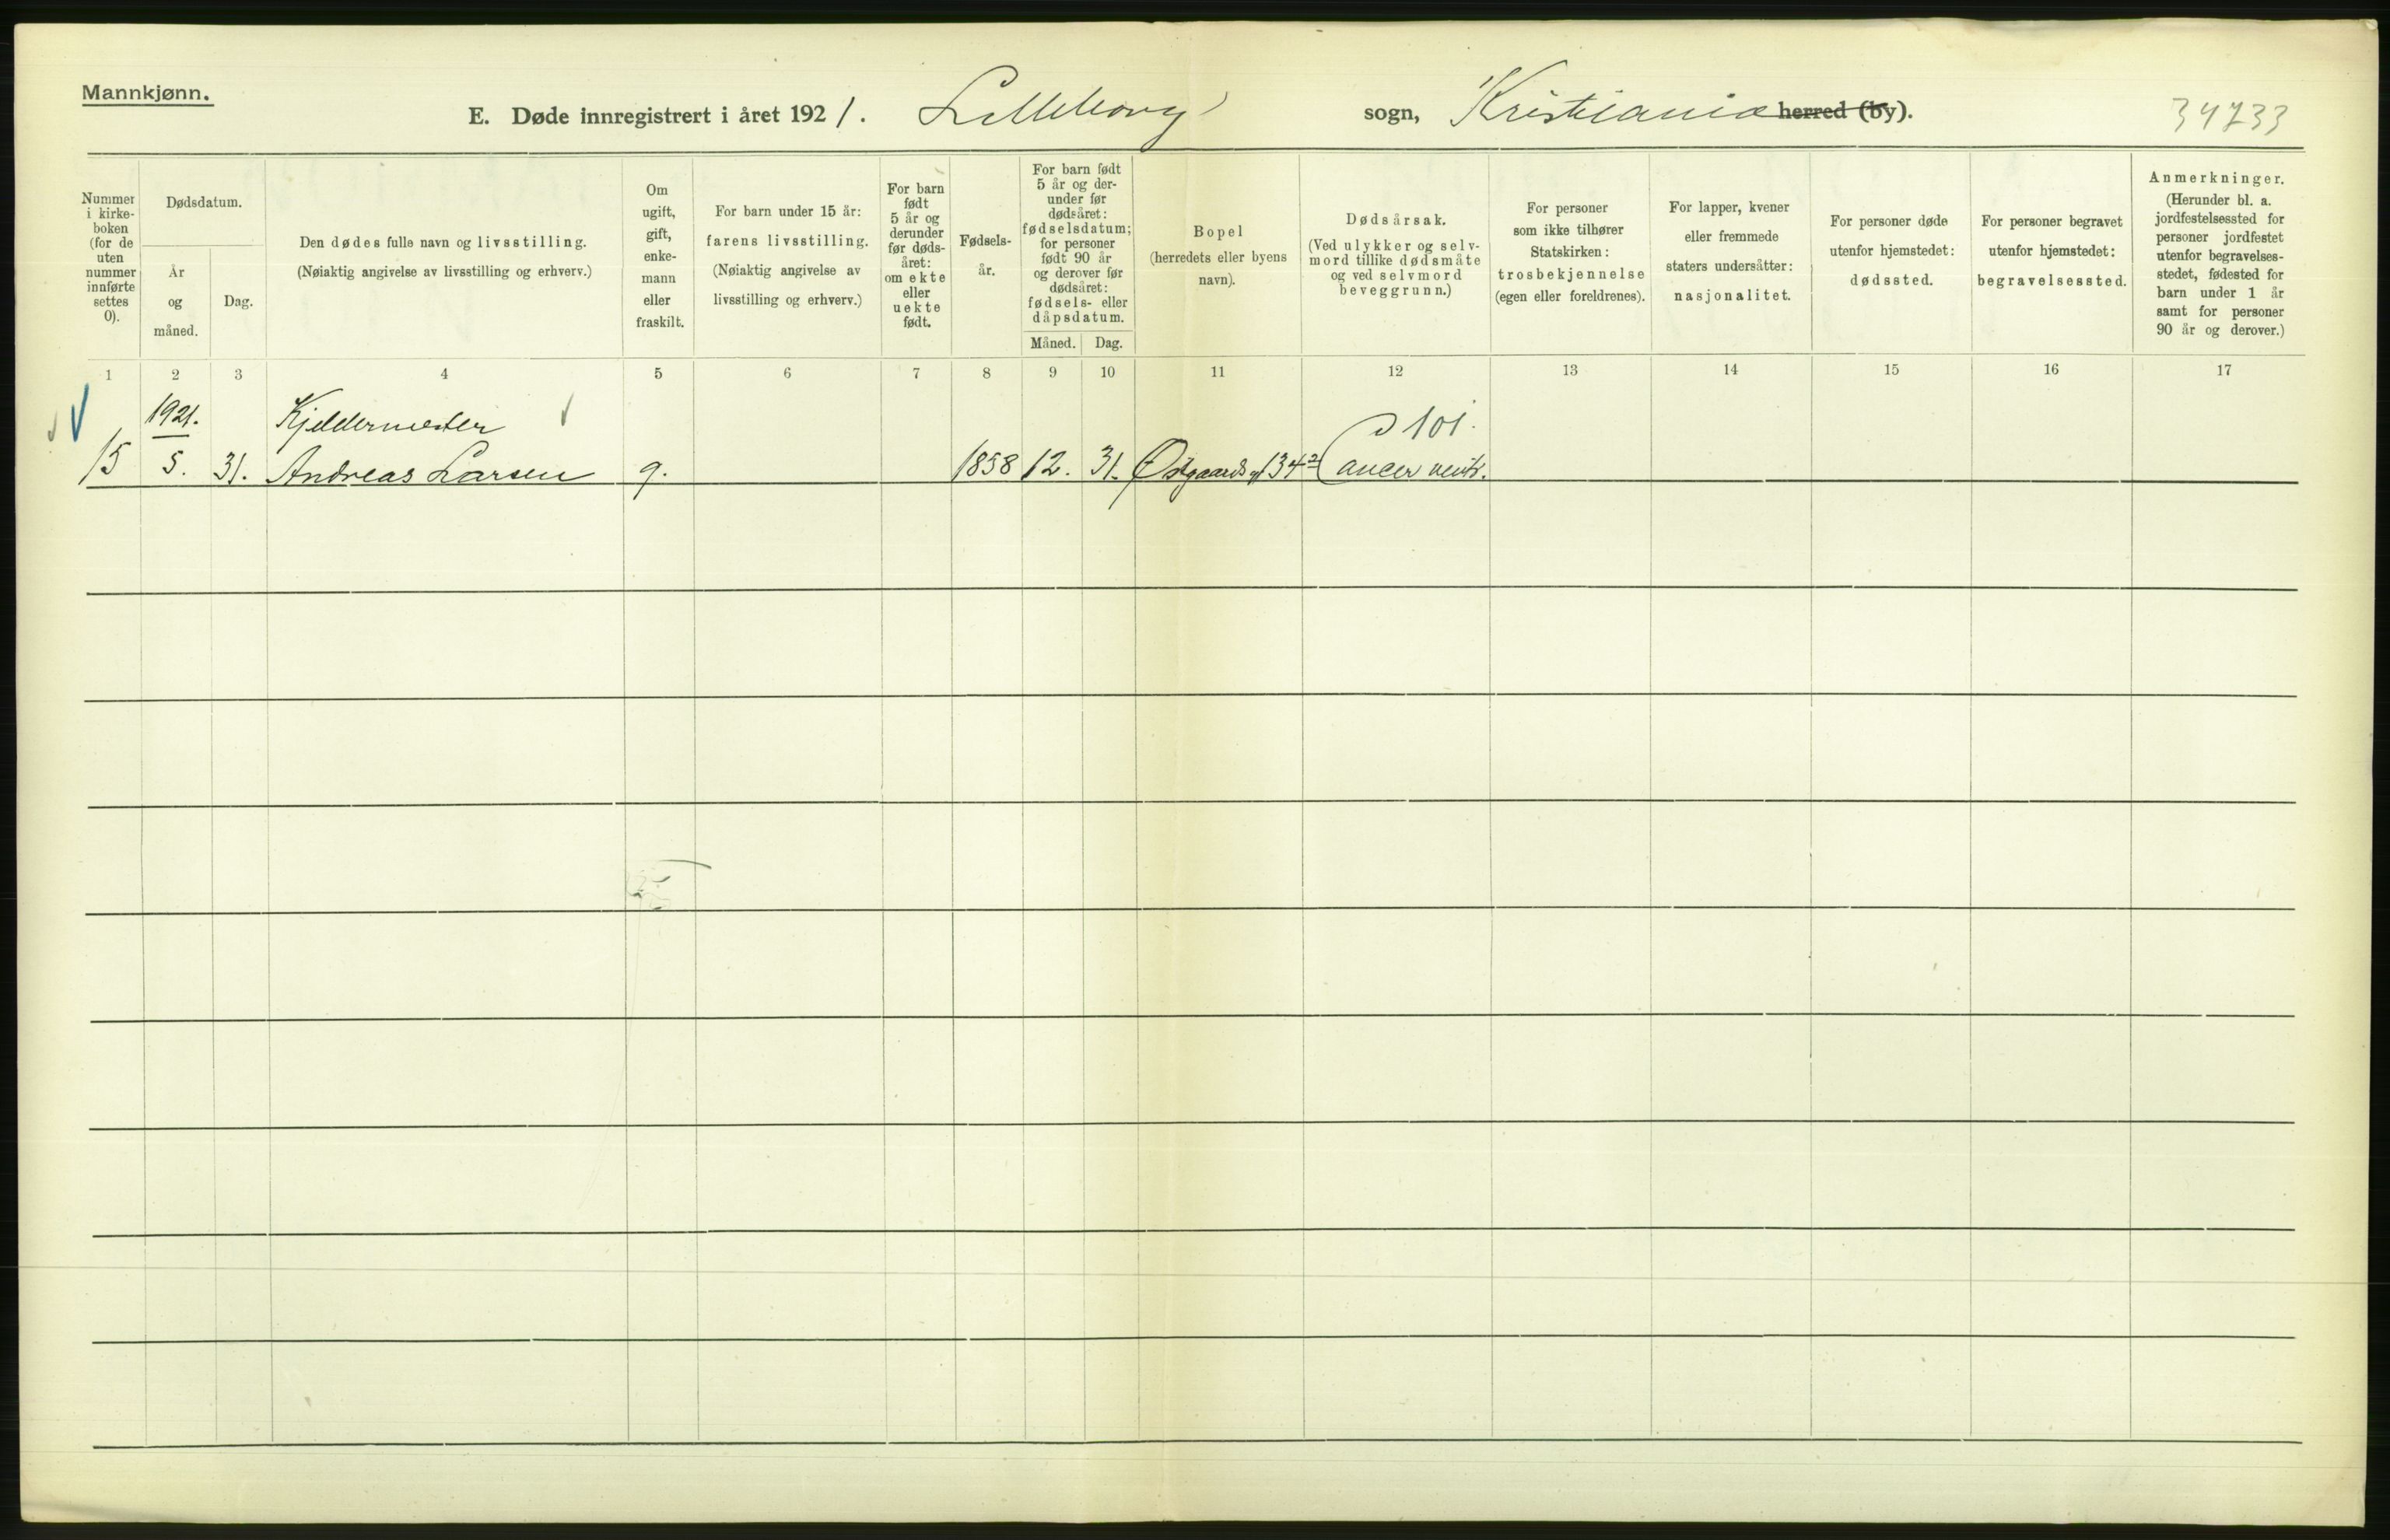 Mannkjønn.
E. Døde innregistrert i året 1921. Lilleborg sogn, Kristiania herred (by). 34733
Nummer i kirkeboken (for de uten nummer innførte settes 0).
Dødsdatum.
År og måned.
Dag.
Den dødes fulle navn og livsstilling.
(Nøiaktig angivelse av livsstilling og erhverv.)
Om ugift, gift, enkemann eller fraskilt.
For barn under 15 år:
farens livsstilling.
(Nøiaktig angivelse av
livsstilling og erhverv.)
For barn født 5 år og derunder før dødsåret: om ekte eller uekte født.
Fødselsår.
For barn født 5 år og derunder før dødsåret: fødselsdatum; for personer født 90 år og derover før dødsåret: fødsels- eller dåpsdatum.
Måned. Dag.
Bopel
(herredets eller byens
navn).
Dødsårsak.
(Ved ulykker og selvmord tillike dødsmåte og ved selvmord beveggrunn.)
For personer
som ikke tilhører
Statskirken:
trosbekjennelse
(egen eller foreldrenes).
For lapper, kvener
eller fremmede
staters undersåtter:
nasjonalitet.
For personer døde
utenfor hjemstedet:
dødssted.
For personer begravet
utenfor hjemstedet:
begravelsessted.
Anmerkninger.
(Herunder bl. a.
jordfestelsessted for
personer jordfestet
utenfor begravelses-
stedet, fødested for
barn under 1 år
samt for personer
90 år og derover.)
1 2 3 4 5 6 7 8 9 10 11 12 13 14 15 16 17
1921. Kjeldermester 101.
15 5. 31. Andreas Larsen g. 1858 12. 31. Østgaards gt 34 2 Cancer ventr.